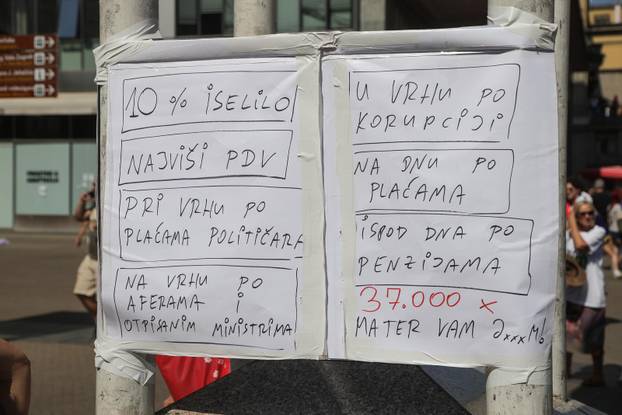 10 % ISELILO
NAJVIŠI PDV
PRI VRHU PO
PLAČAMA POLITIČARA
NA VRHU PO
AFERAMA I
OTPISANIM MINISTRIMA
U VRHU PO
KORUPCIJI
NA DNU PO
PLAČAMA
ISPOD DNA PO
PENZIJAMA
37.000 x
MATER VAM JxxxM!